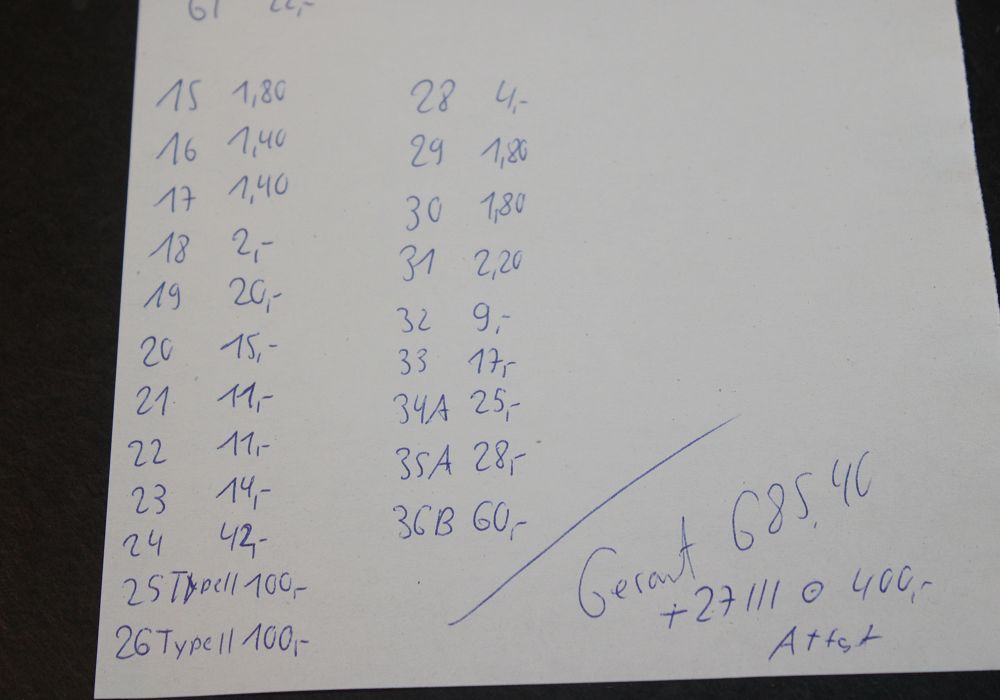 61 22,-
15 1,80
16 1,40
17 1,40
18 2,-
19 20,-
20 15,-
21 11,-
22 11,-
23 14,-
24 42,-
25 Type II 100,-
26 Type II 100,-
28 4,-
29 1,80
30 1,80
31 2,20
32 9,-
33 17,-
34A 25,-
35A 28,-
36B 60,-
Gesamt 685,40
+27 III ⊙ 400,-
Attest